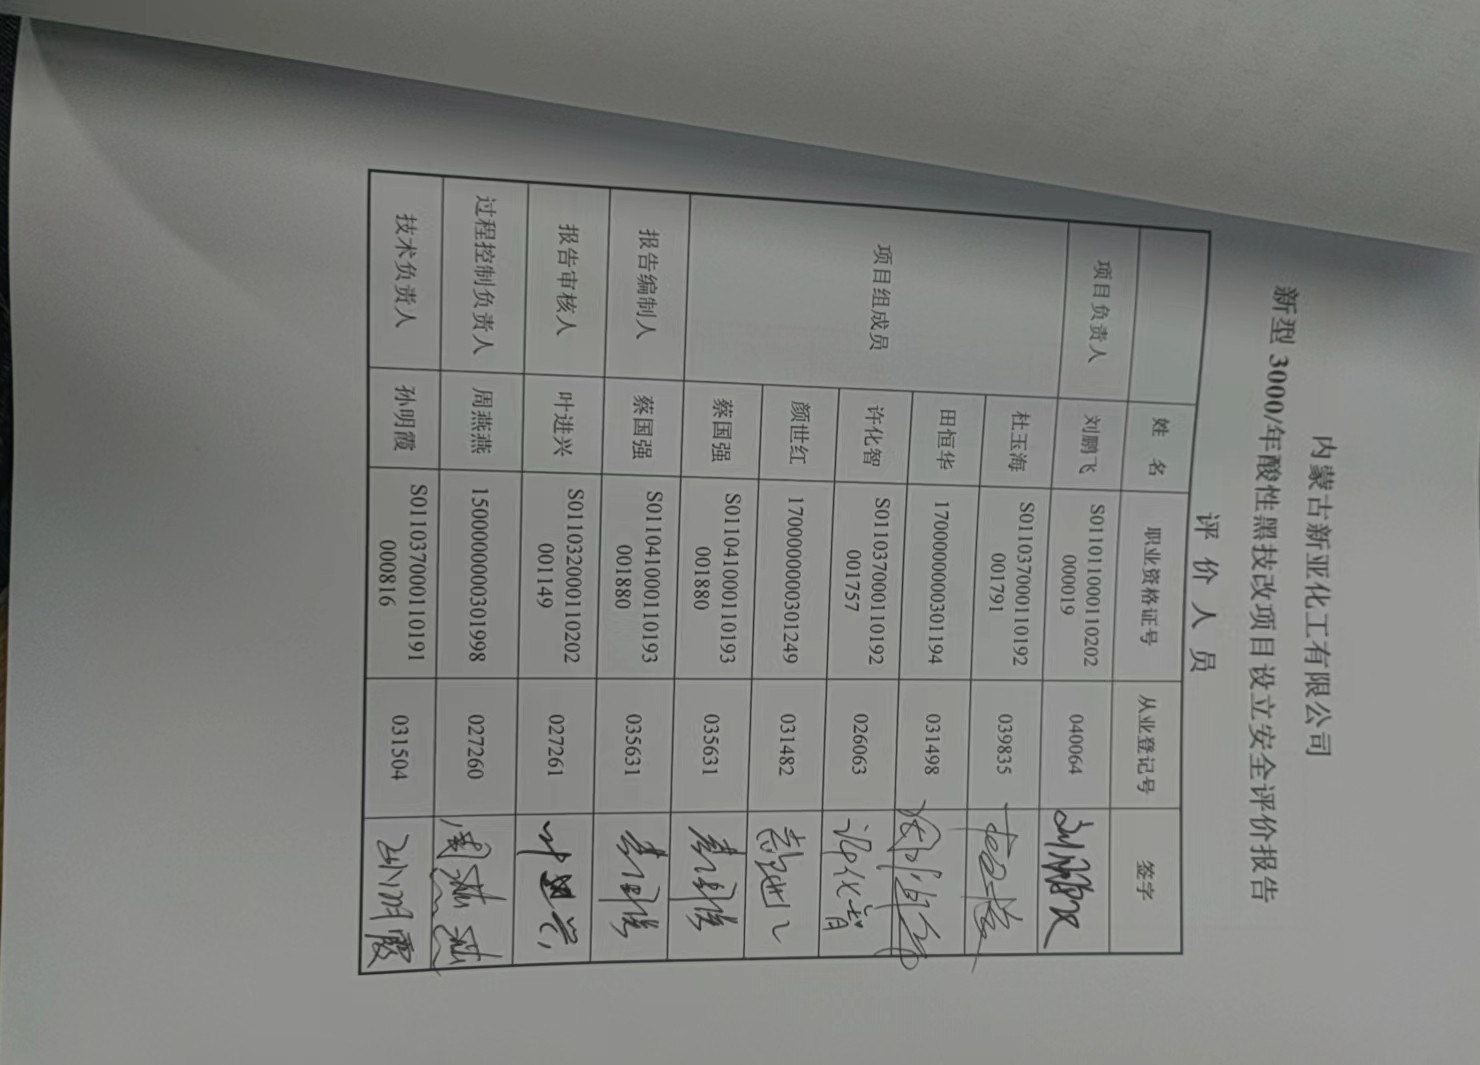 内蒙古新亚化工有限公司
新型 3000/年酸性黑技改项目设立安全评价报告
评 价 人 员
姓 名 职业资格证号 从业登记号 签字
项目负责人 刘鹏飞 S011011000110202000019 040064 刘鹏飞
项目组成员 杜玉海 S011037000110192001791 039835 杜玉海
田恒华 1700000000301194 031498 田恒华
许化智 S011037000110192001757 026063 许化智
颜世红 1700000000301249 031482 颜世红
蔡国强 S011041000110193001880 035631 蔡国强
报告编制人 蔡国强 S011041000110193001880 035631 蔡国强
报告审核人 叶进兴 S011032000110202001149 027261 叶进兴
过程控制负责人 周燕燕 1500000000301998 027260 周燕燕
技术负责人 孙明霞 S011037000110191000816 031504 孙明霞